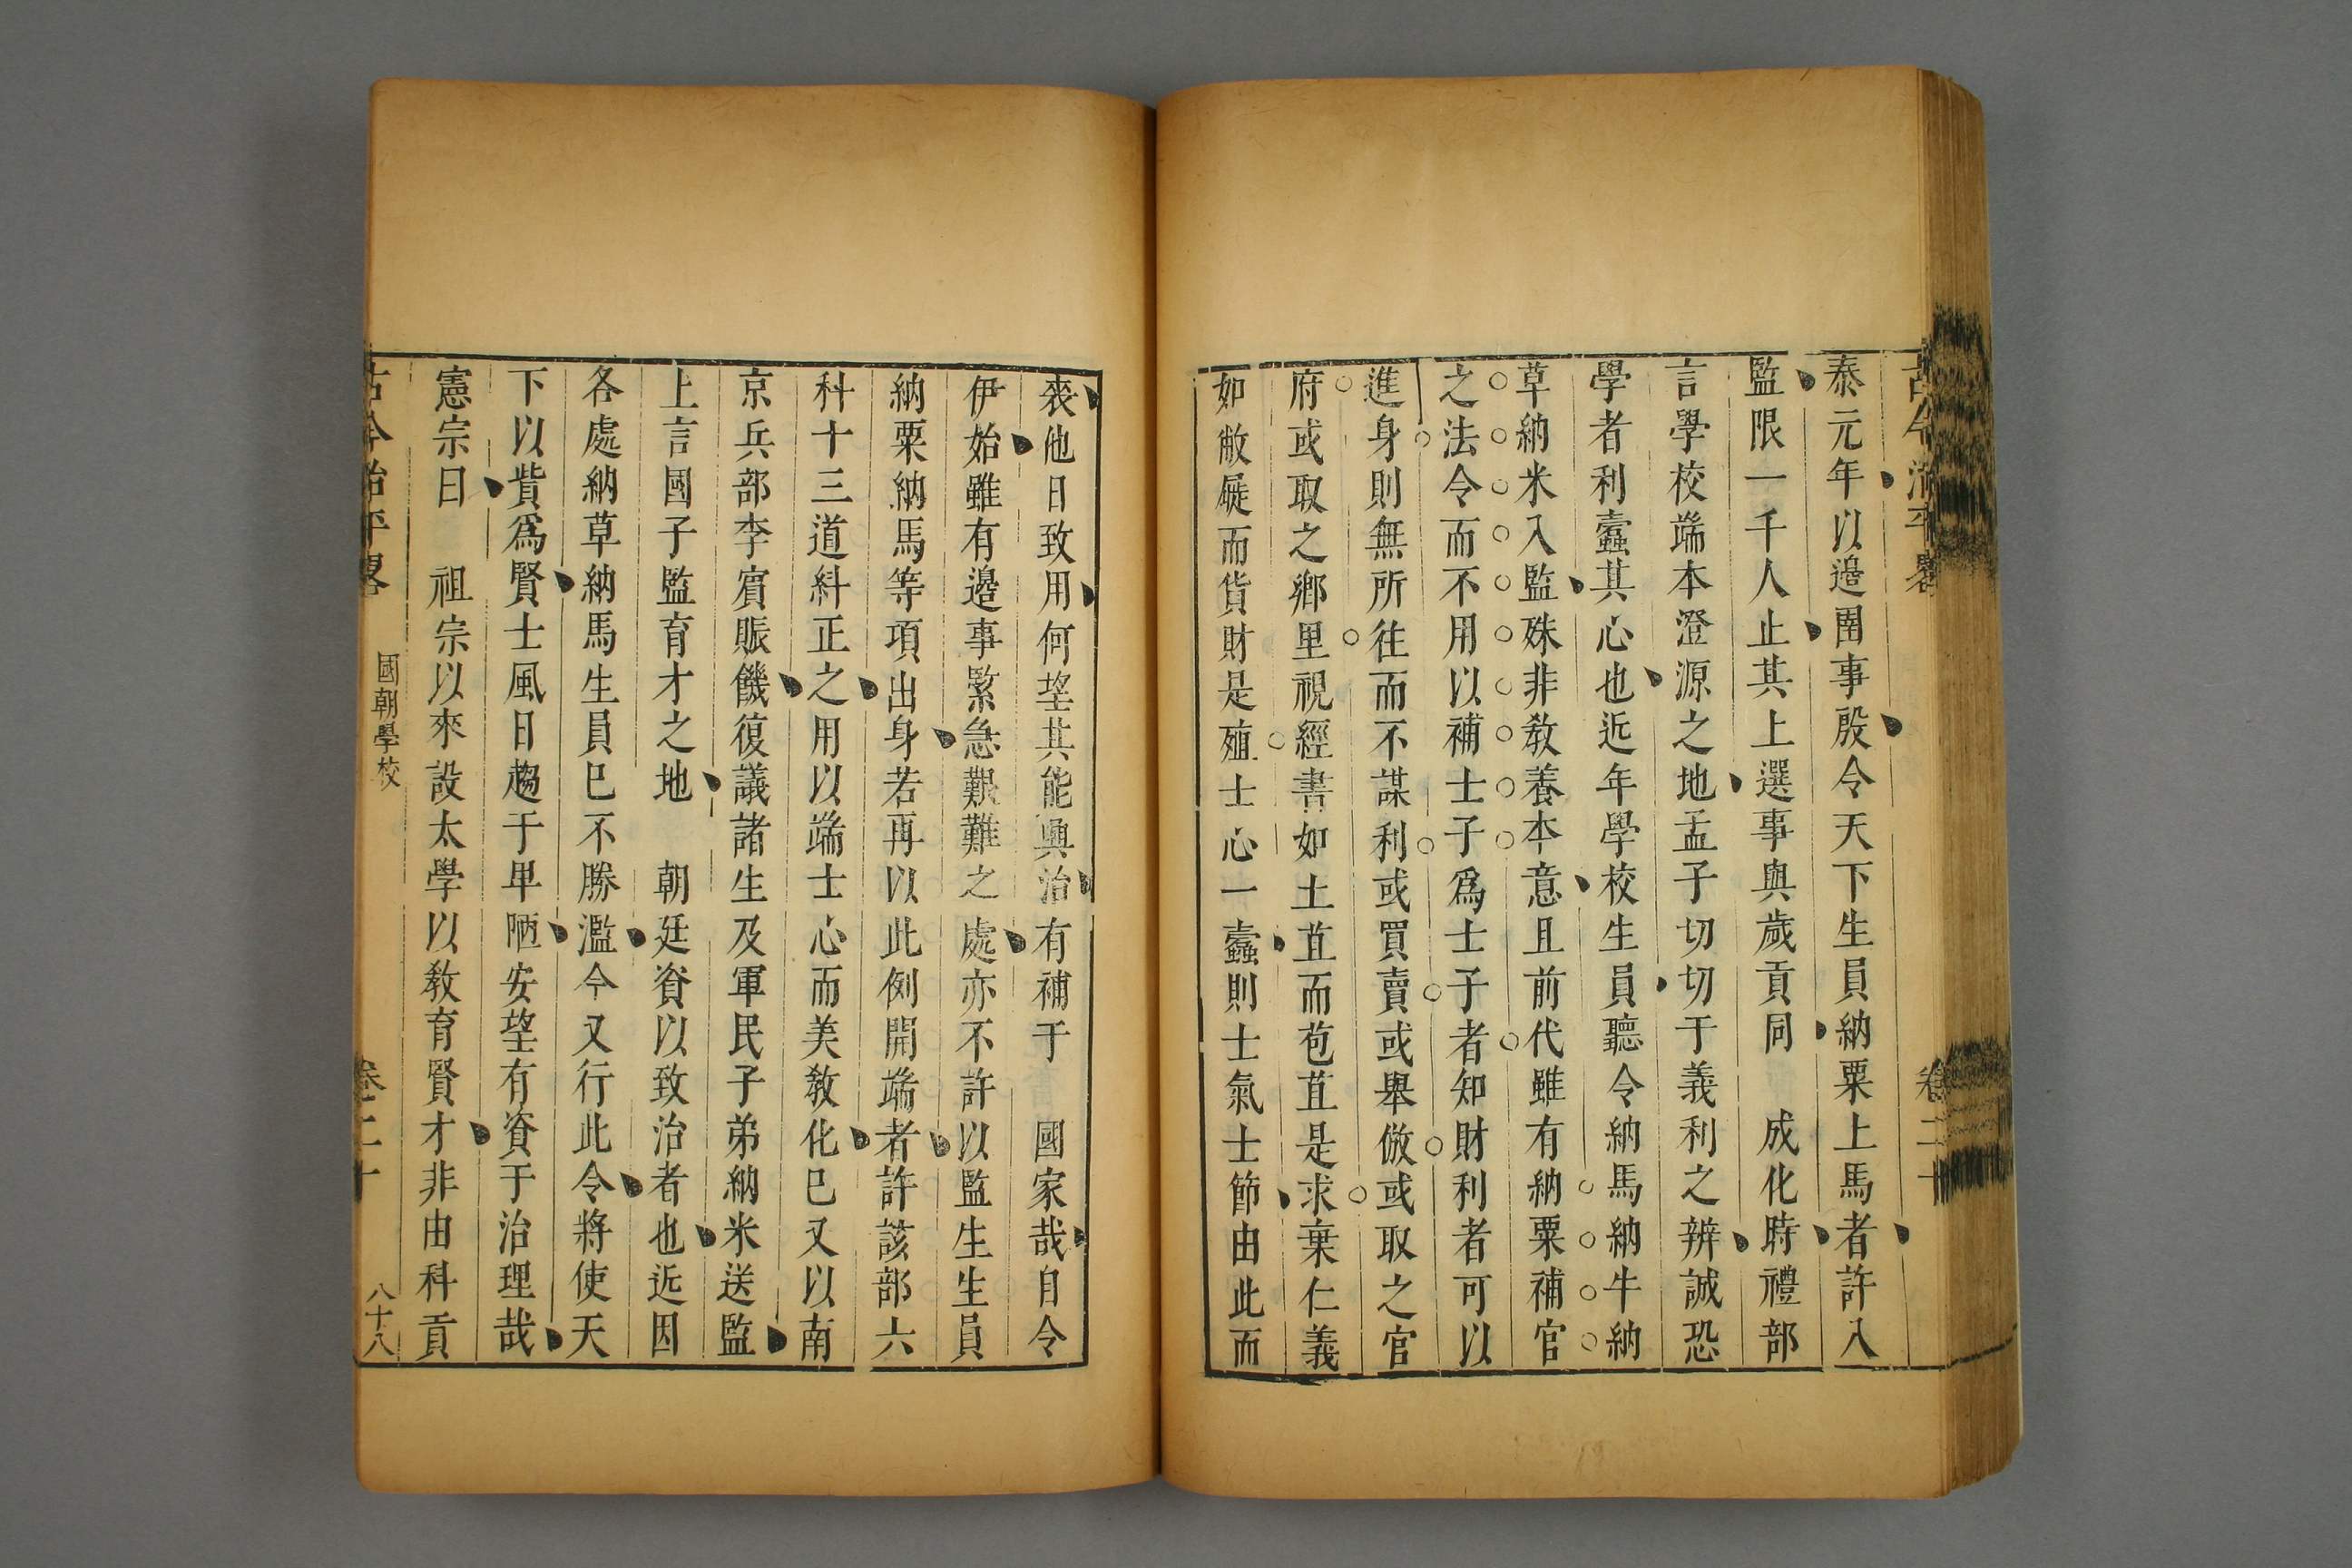 古今治平畧
卷二十
泰元年以邉圉事殷令天下生員納粟上馬者許入
監限一千人止其上選事與歲貢同 成化時禮部
言學校端本澄源之地孟子切切于義利之辨誠恐
學者利蠹其心也近年學校生員聽令納馬納牛納
草納米入監殊非敎養本意且前代雖有納粟補官
之法令而不用以補士子爲士子者知財利者可以
進身則無所往而不謀利或買賣或舉倣或取之官
府或取之鄉里視經書如土苴而苞苴是求棄仁義
如敝屣而貨財是殖士心一蠹則士氣士節由此而
䘮他日致用何望其能興治有補于 國家哉自今
伊始雖有邉事緊急艱難之處亦不許以監生生員
納粟納馬等項出身若再以此例開端者許該部六
科十三道紏正之用以端士心而美敎化已又以南
京兵部李賔賑饑復議諸生及軍民子弟納米送監
上言國子監育才之地 朝廷資以致治者也近因
各處納草納馬生員已不勝濫今又行此令將使天
下以貲爲賢士風日趨于卑陋安望有資于治理哉
憲宗曰 祖宗以來設太學以敎育賢才非由科貢
古今治平畧
國朝學校
卷二十
八十八